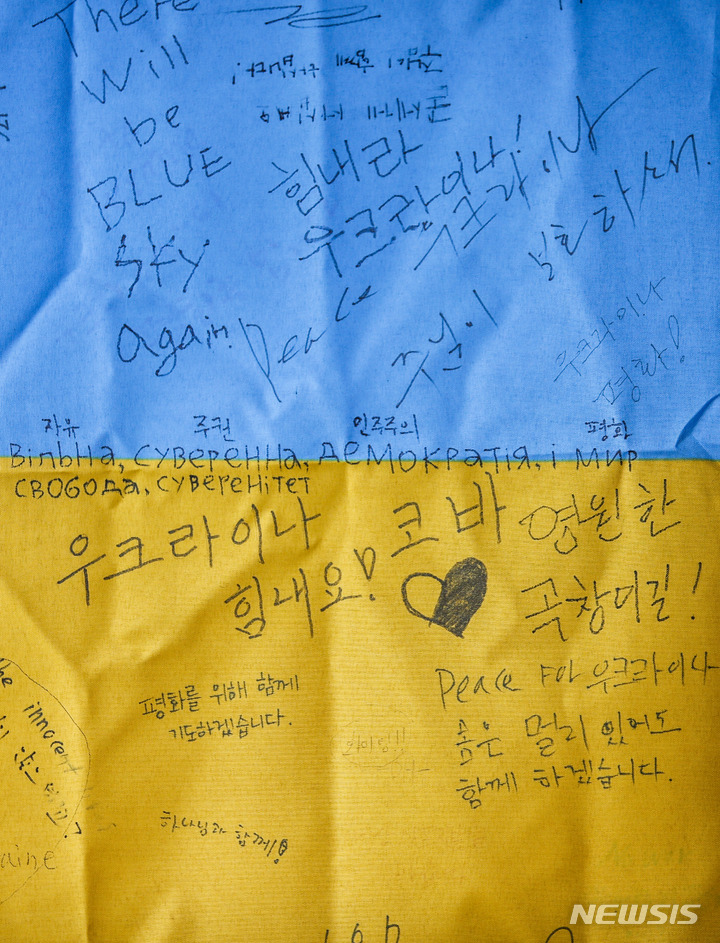 There
Will
be
BLUE
sky
again.
힘내라
우크라이나!
우크라이나
Peace
주님이 보호하사.
우크라이나
평화!
자유 주권 민주주의 평화
Вільна, суверенна, демократія, і мир
свобода, суверенітет
우크라이나
힘내요!
코바 영원한
곡창이길!
평화를 위해 함께
기도하겠습니다.
Peace For 우크라이나
몸은 멀리 있어도
함께 하겠습니다.
화이팅!!
하나님과 함께!
the innocent
aine
NEWSIS